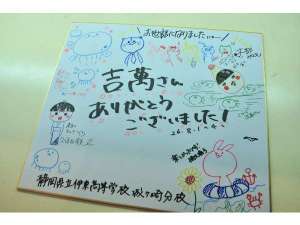 お世話になりました
吉萬さん
ありがとう
ございました!
26.8.1~4
静岡県立伊東高等学校 城ヶ崎分校